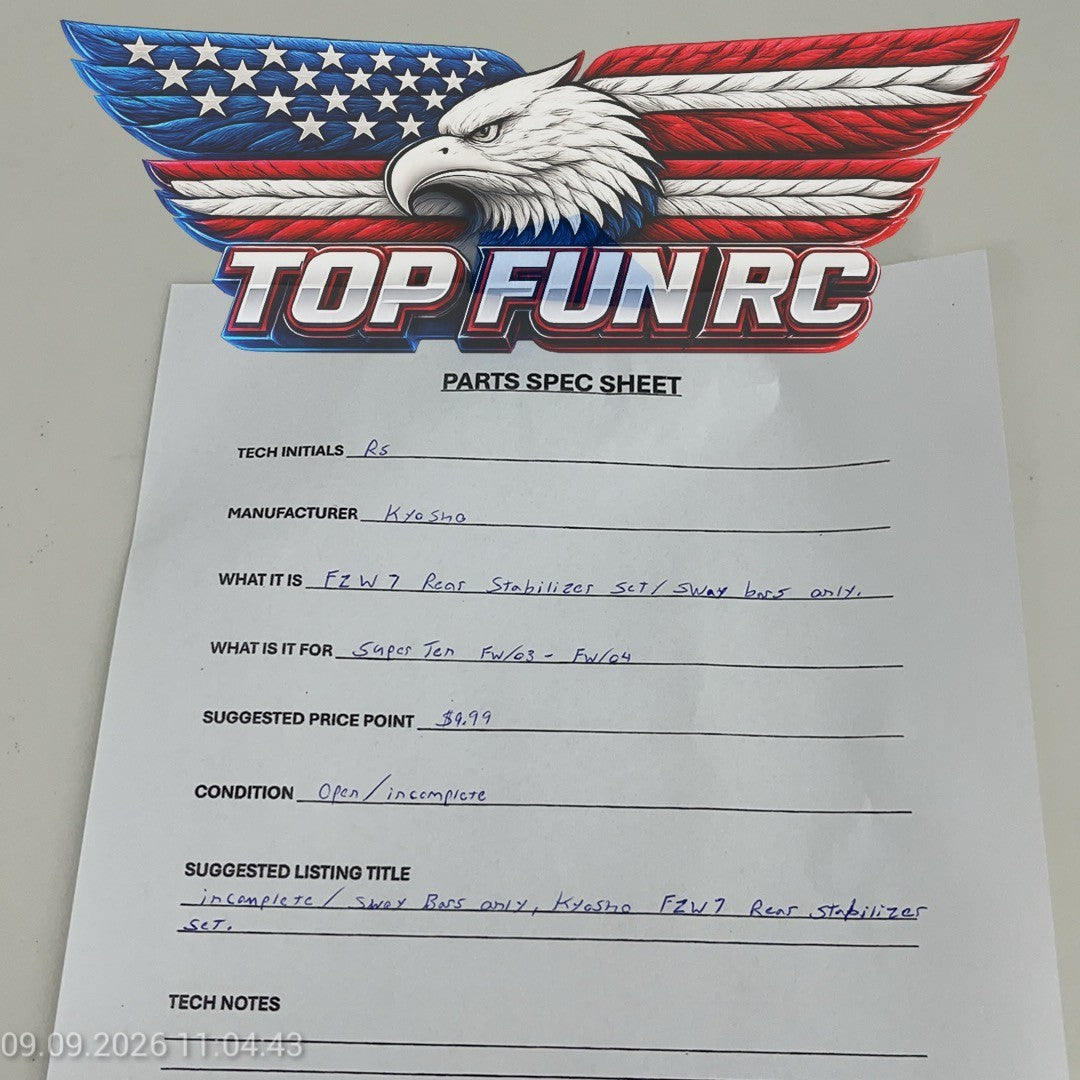 TOP FUN RC
PARTS SPEC SHEET
TECH INITIALS RS
MANUFACTURER Kyosho
WHAT IT IS FZW7 Rear Stabilizer Set/ Sway bars only.
WHAT IS IT FOR Super Ten FW/03 - FW/04
SUGGESTED PRICE POINT $9.99
CONDITION Open/incomplete
SUGGESTED LISTING TITLE
incomplete/ Sway Bars only, Kyosho FZW7 Rear Stabilizer
Set.
TECH NOTES
09.09.2026 11:04:43